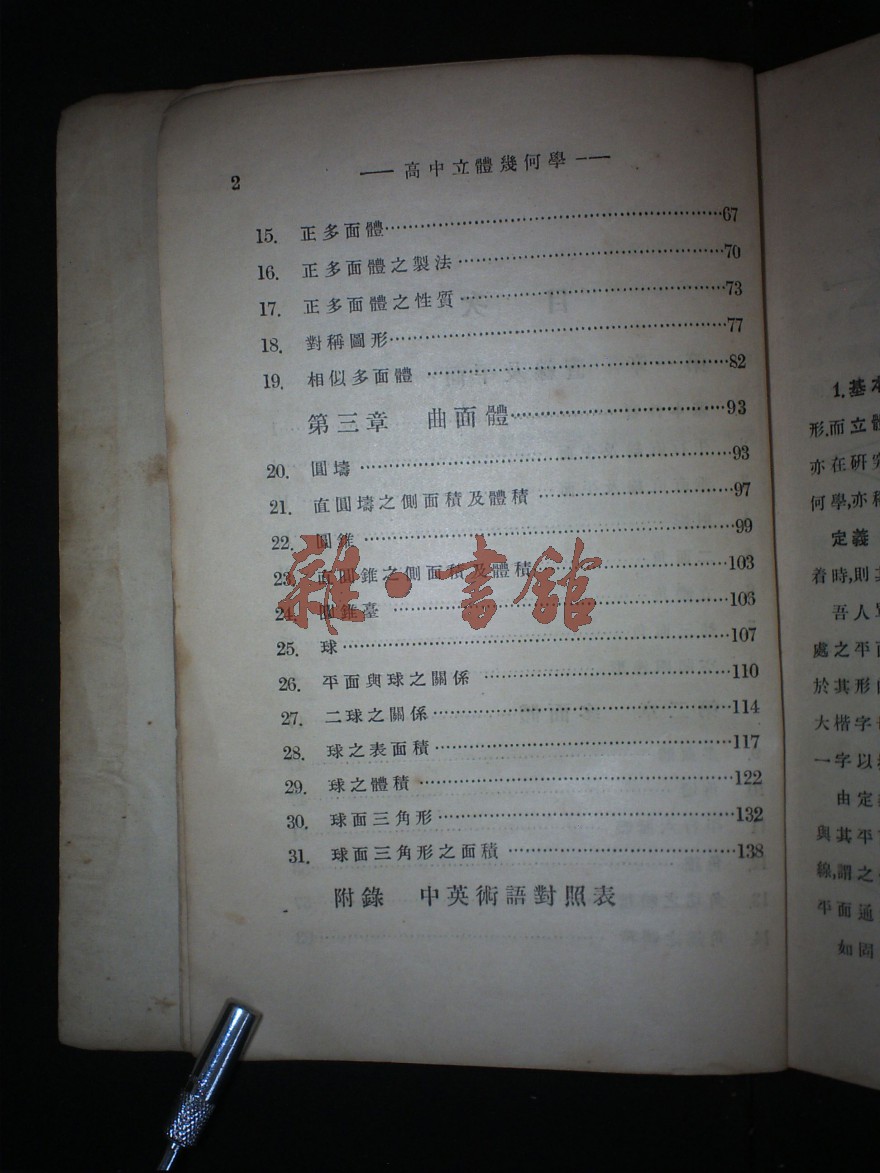 2 ——高中立體幾何學——
15. 正多面體……67
16. 正多面體之製法……70
17. 正多面體之性質……73
18. 對稱圖形……77
19. 相似多面體……82
第三章 曲面體……93
20. 圓壔……93
21. 直圓壔之側面積及體積……97
22. 圓錐……99
23. 直圓錐之側面積及體積……103
24. 圓錐臺……103
25. 球……107
26. 平面與球之關係……110
27. 二球之關係……114
28. 球之表面積……117
29. 球之體積……122
30. 球面三角形……132
31. 球面三角形之面積……138
附錄 中英術語對照表
雜·書館
1.基本
形,而立體
亦在研究
何學,亦稱
定義
着時,則其
吾人
處之平面
於其形
大楷字
一字以
由定
與其平
線,謂之
平面通
如圖